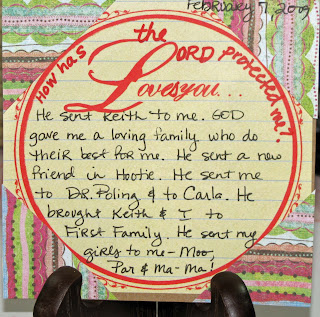 February 7, 2009
How has the LORD protected me?
Loves you...
He sent Keith to me. GOD
gave me a loving family who do
their best for me. He sent a new
friend in Hootie. He sent me
to DR. Poling & to Carla. He
brought Keith & I to
First Family. He sent my
girls to me - Moo,
Par & Ma-Ma!